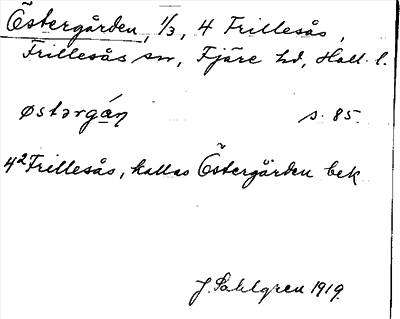 Östergården, 1/3, 4 Frillesås,
Frillesås sn, Fjäre hd, Hall. l.
østərgán s. 85.
4² Frillesås, kallas Östergården bek
J. Sahlgren 1919.